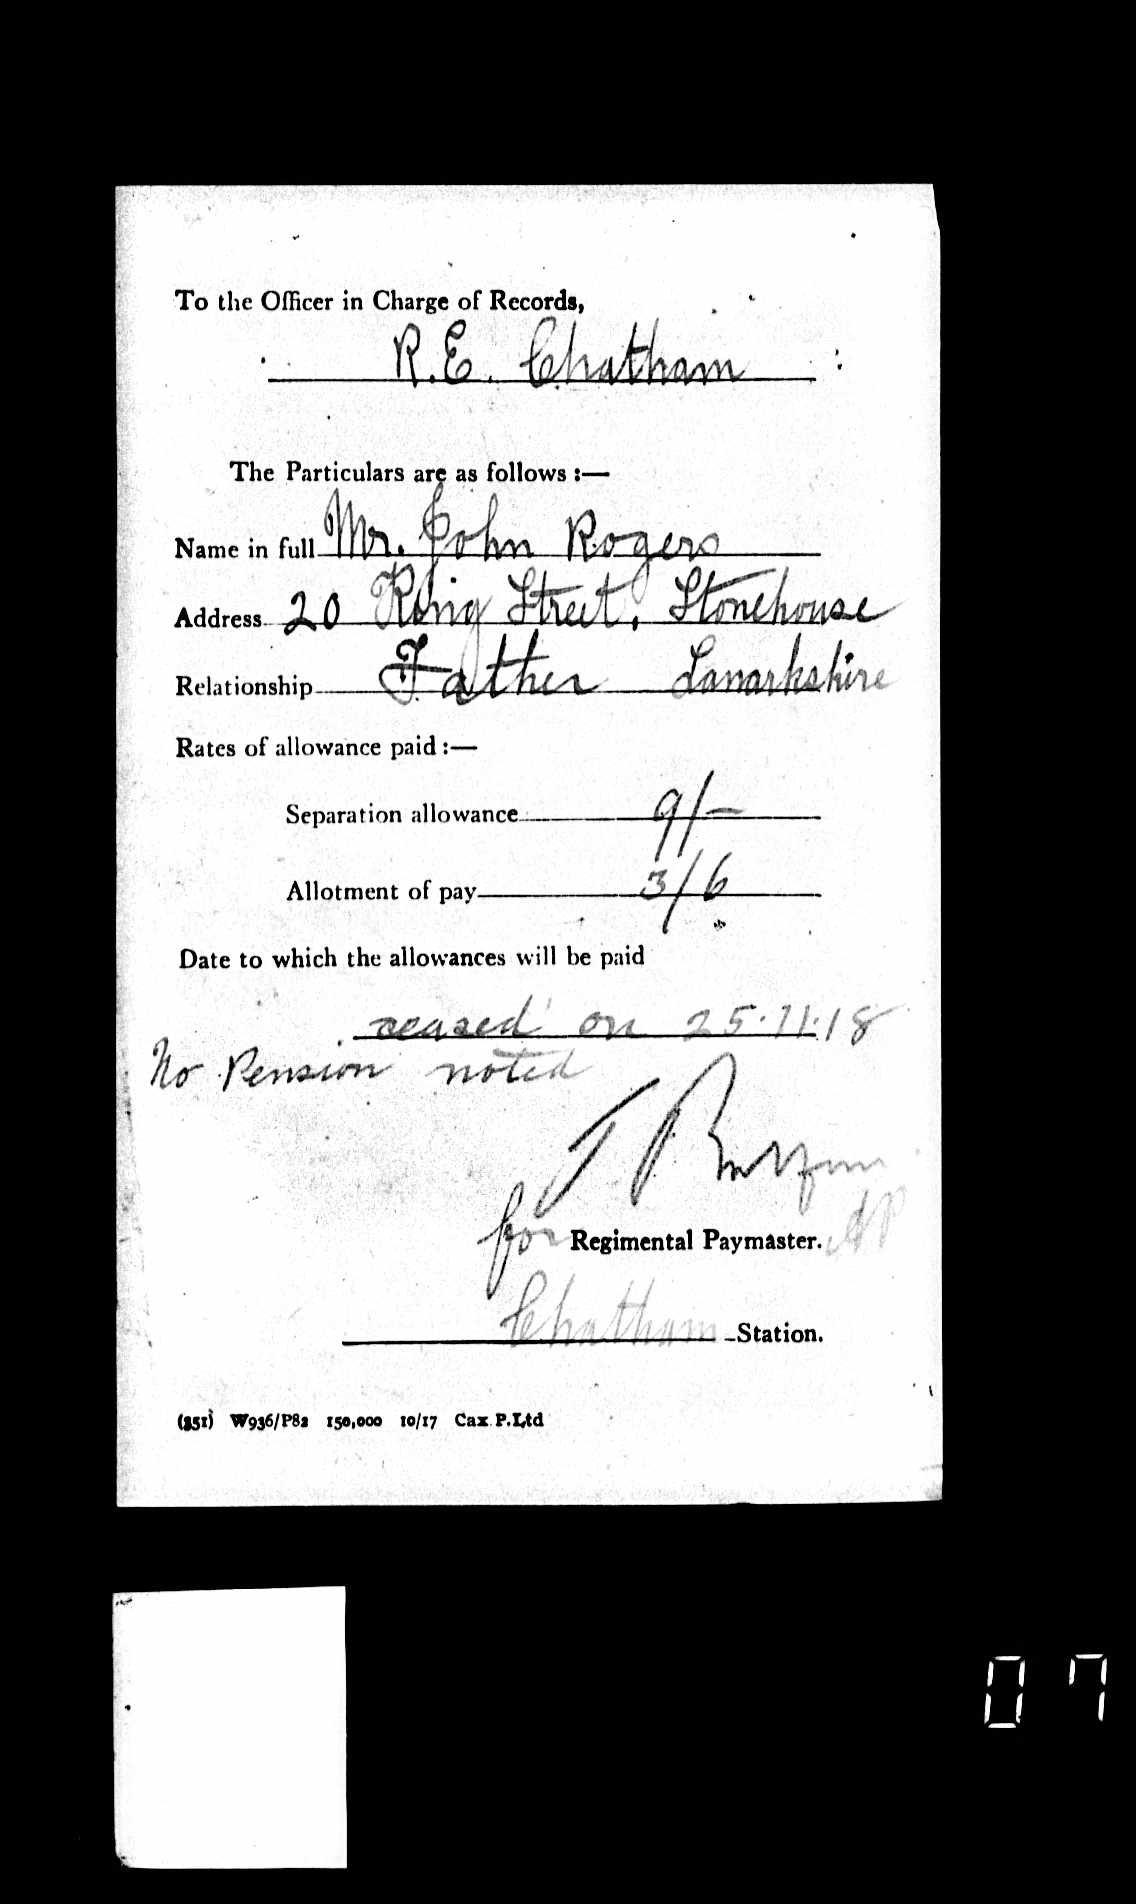 To the Officer in Charge of Records,
R.E. Chatham
The Particulars are as follows :—
Name in full Mr. John Rogers
Address 20 King Street, Stonehouse
Relationship Father Lanarkshire
Rates of allowance paid :—
Separation allowance 9/-
Allotment of pay 3/6
Date to which the allowances will be paid
ceased on 25.11.18
No Pension noted
for Regimental Paymaster. AP
Chatham Station.
(351) W936/P82 150,000 10/17 Cax P.Ltd
07